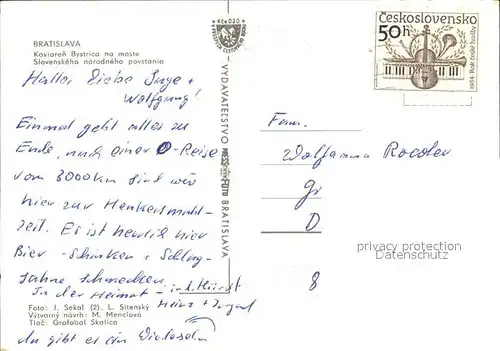 BRATISLAVA
Kaviareň Bystrica na moste
Slovenského národného povstania
Hallo, liebe Inge +
Wolfgang!
Einmal geht alles zu
Ende, nach einer D-Reise
von 3000 km sind wir
hier zur Henkersmahl-
zeit. Es ist herrlich hier
Bier - Schinken + Schlag-
sahne schmecken.
In der Heimat
Heinz +
Foto: J. Sekal (2), L. Sitenský
Výtvarný návrh: M. Menclová
Tlač: Grafobal Skalica
da gibt es ein Wiedersehn
Kčs 0,20
VYDAVATEĽSTVO
BRATISLAVA
Československo
50h
1984 - Rok české hudby
Fam.
Wolfgang
D
8
privacy protection
Datenschutz